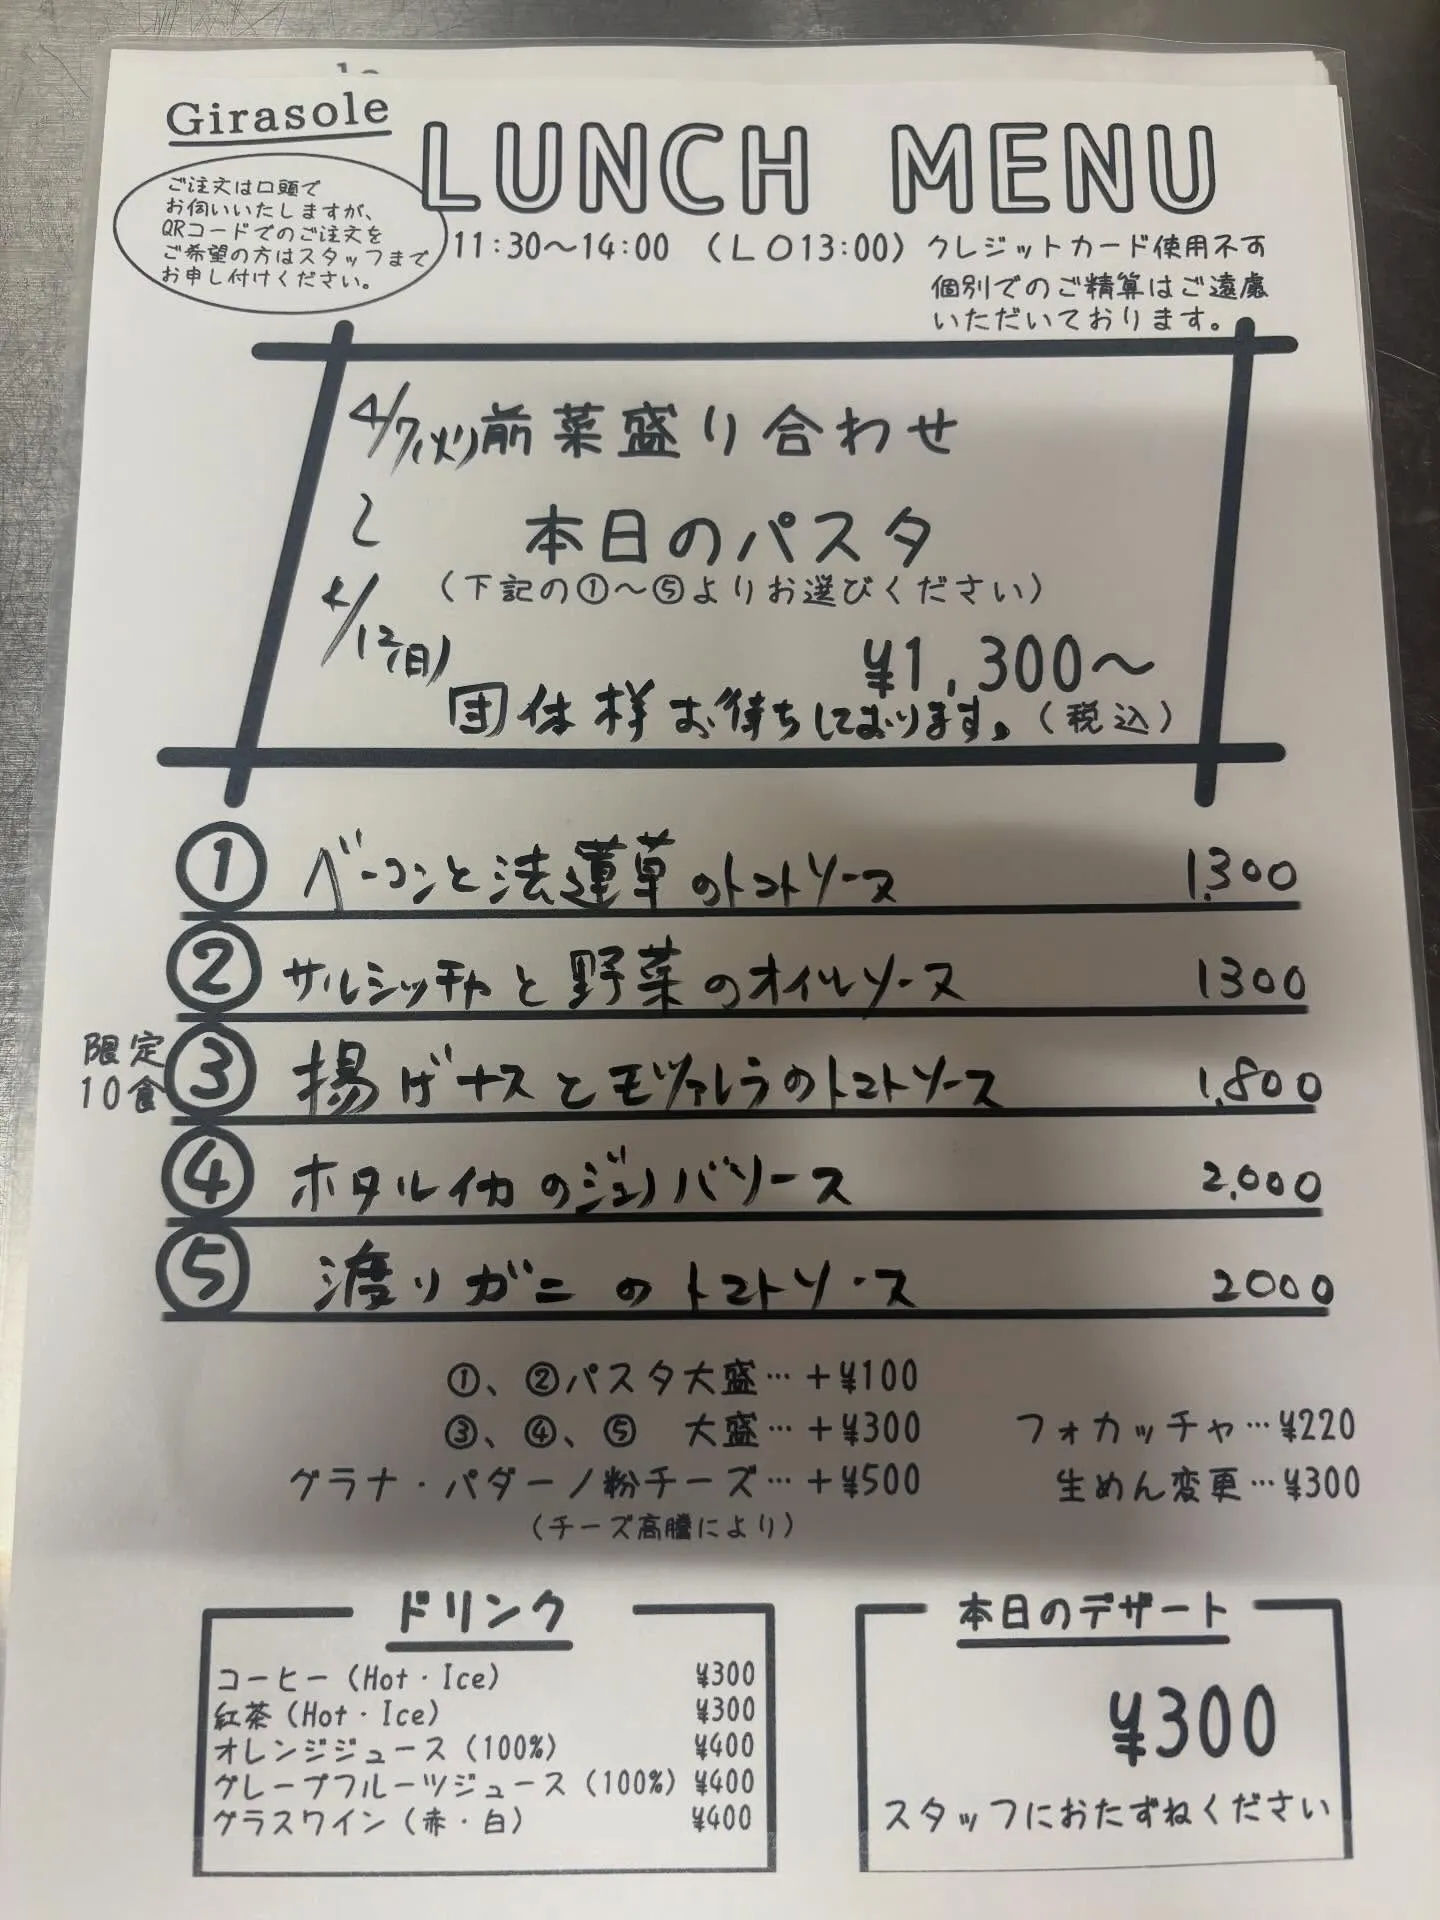 Girasole
LUNCH MENU
ご注文は口頭で
お伺いいたしますが、
QRコードでのご注文を
ご希望の方はスタッフまで
お申し付けください。
11:30～14:00 (LO13:00) クレジットカード使用不可
個別でのご精算はご遠慮
いただいております。
4/7(火) 前菜盛り合わせ
～ 本日のパスタ
(下記の①～⑤よりお選びください)
4/12(日)
¥1,300～
団体様お待ちしております。(税込)
① ベーコンと法蓮草のトマトソース 1,300
② サルシッチャと野菜のオイルソース 1300
限定
10食
③ 揚げナスとモッツァレラのトマトソース 1,800
④ ホタルイカのジェノバソース 2,000
⑤ 渡りガニのトマトソース 2000
①、②パスタ大盛…+¥100
③、④、⑤ 大盛…+¥300 フォカッチャ…¥220
グラナ・パダーノ粉チーズ…+¥500 生めん変更…¥300
(チーズ高騰により)
ドリンク
コーヒー (Hot・Ice) ¥300
紅茶 (Hot・Ice) ¥300
オレンジジュース (100%) ¥400
グレープフルーツジュース (100%) ¥400
グラスワイン (赤・白) ¥400
本日のデザート
¥300
スタッフにおたずねください